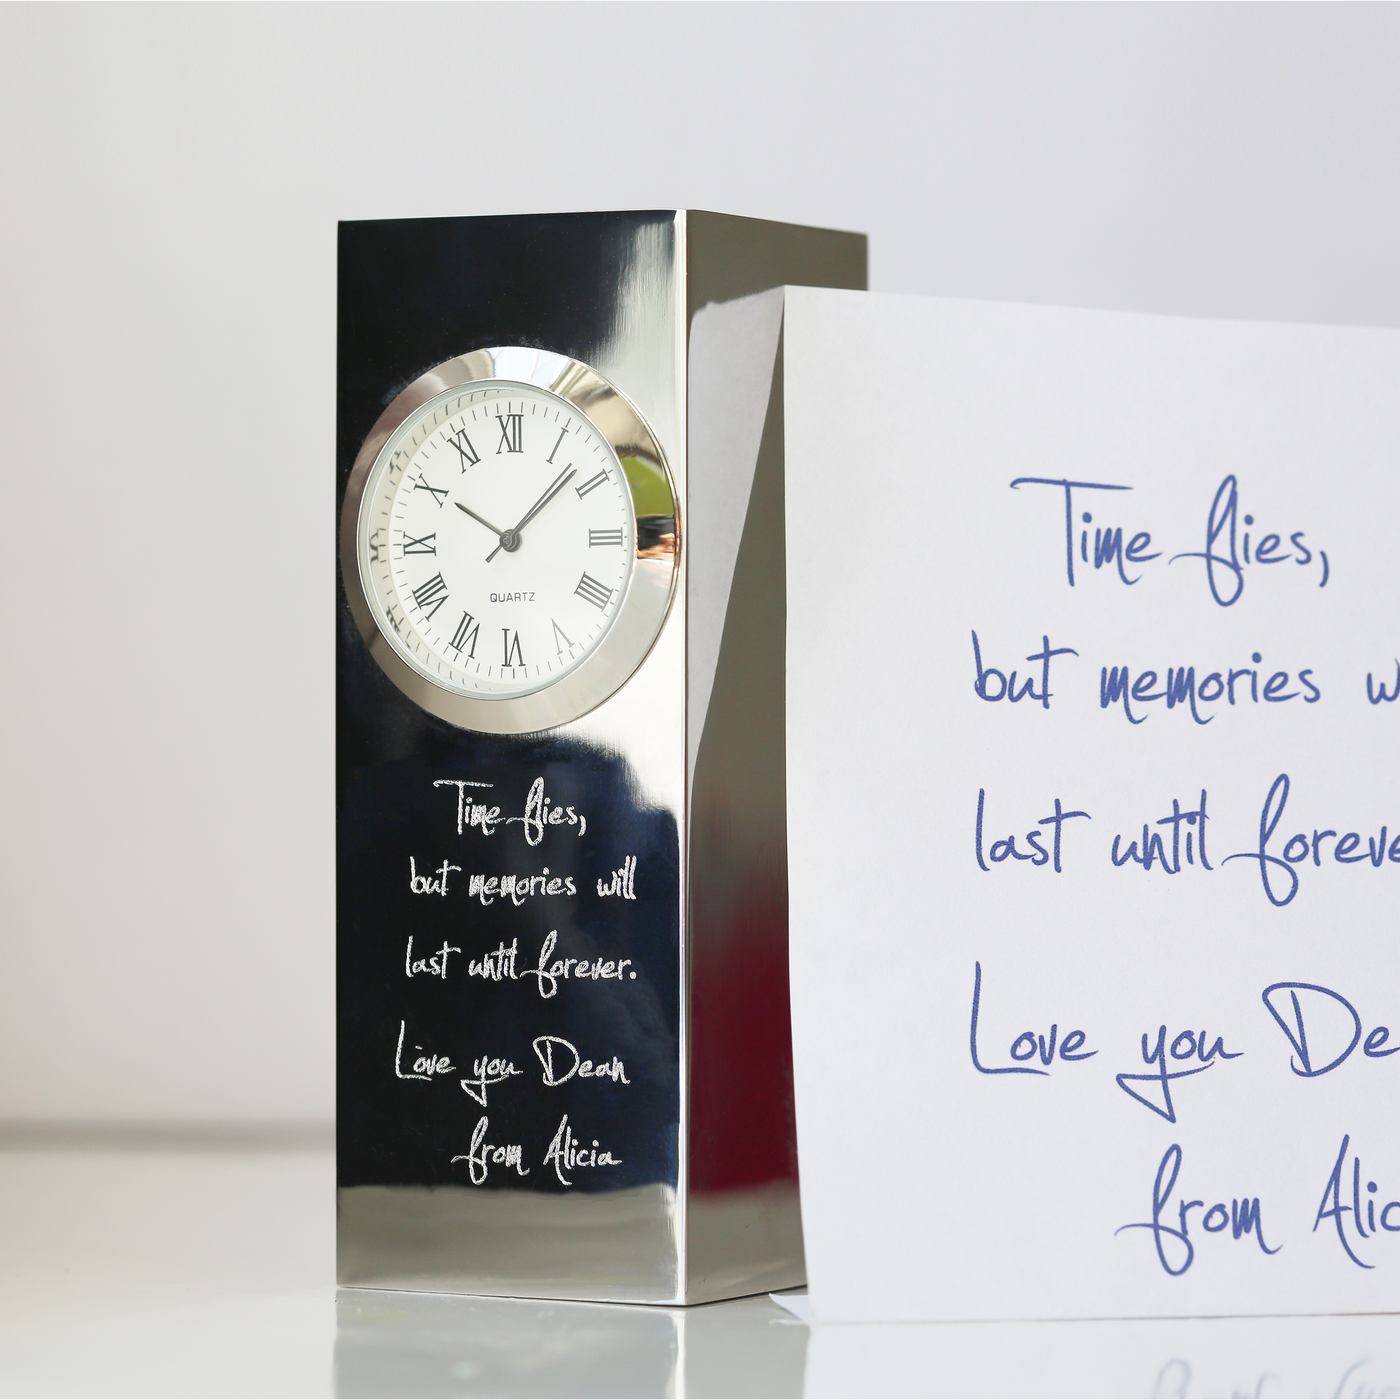 XII
I
II
III
IIII
V
VI
VII
VIII
IX
X
XI
QUARTZ
Time flies,
but memories will
last until forever.
Love you Dean
from Alicia
Time flies,
but memories
last until
Love you
from